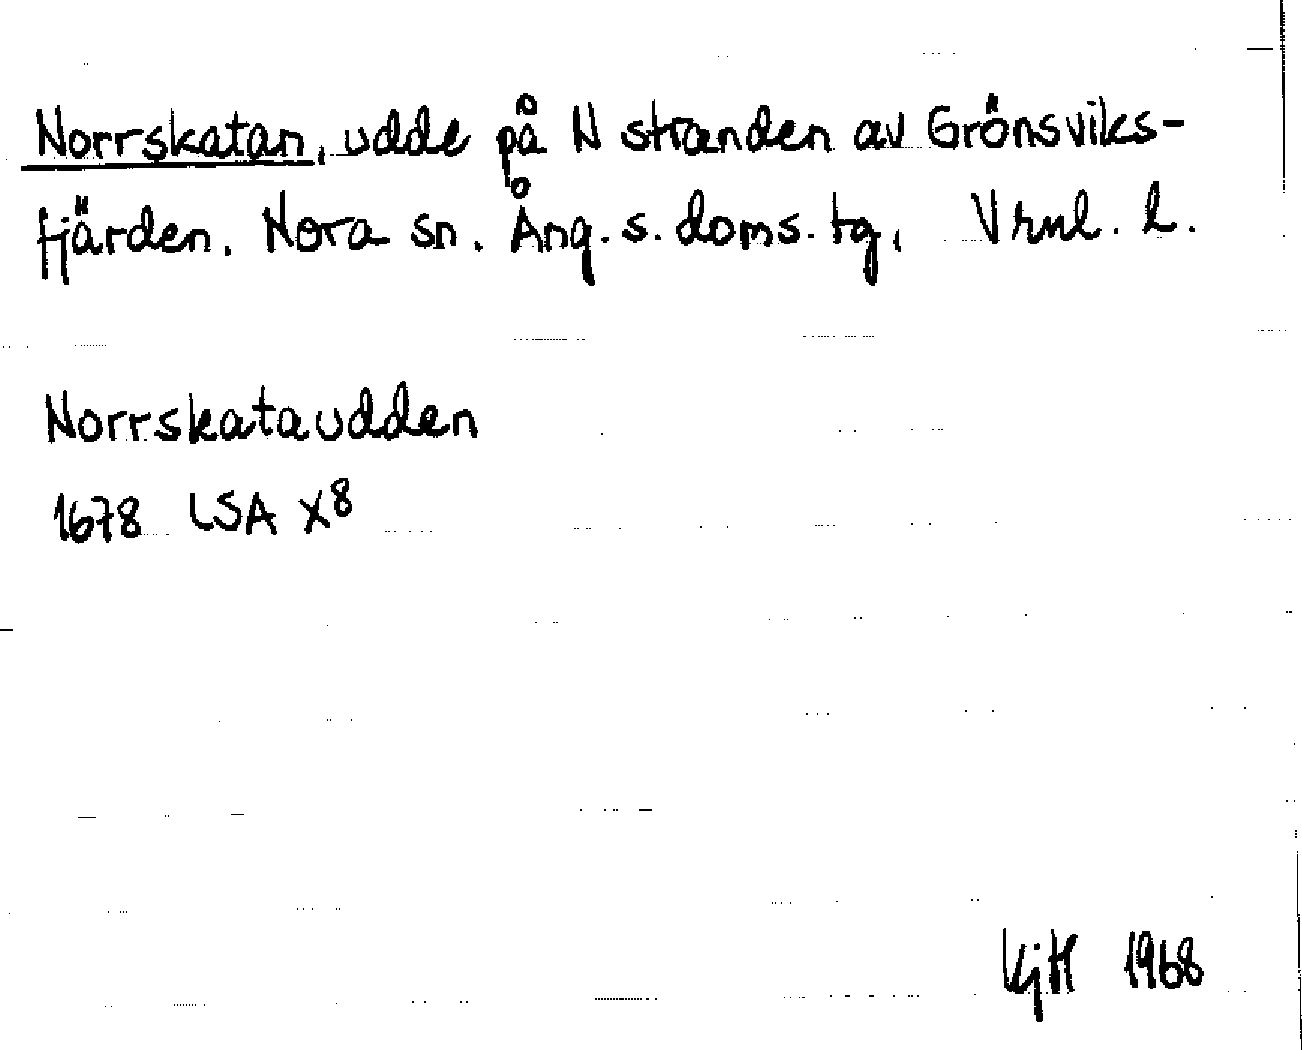 Norrskatan, udde på N stranden av Grönsviks-
fjärden. Nora sn. Ång. s. doms. tg. Vrnl. l.
Norrskataudden
1678 LSA X8
KjH 1968